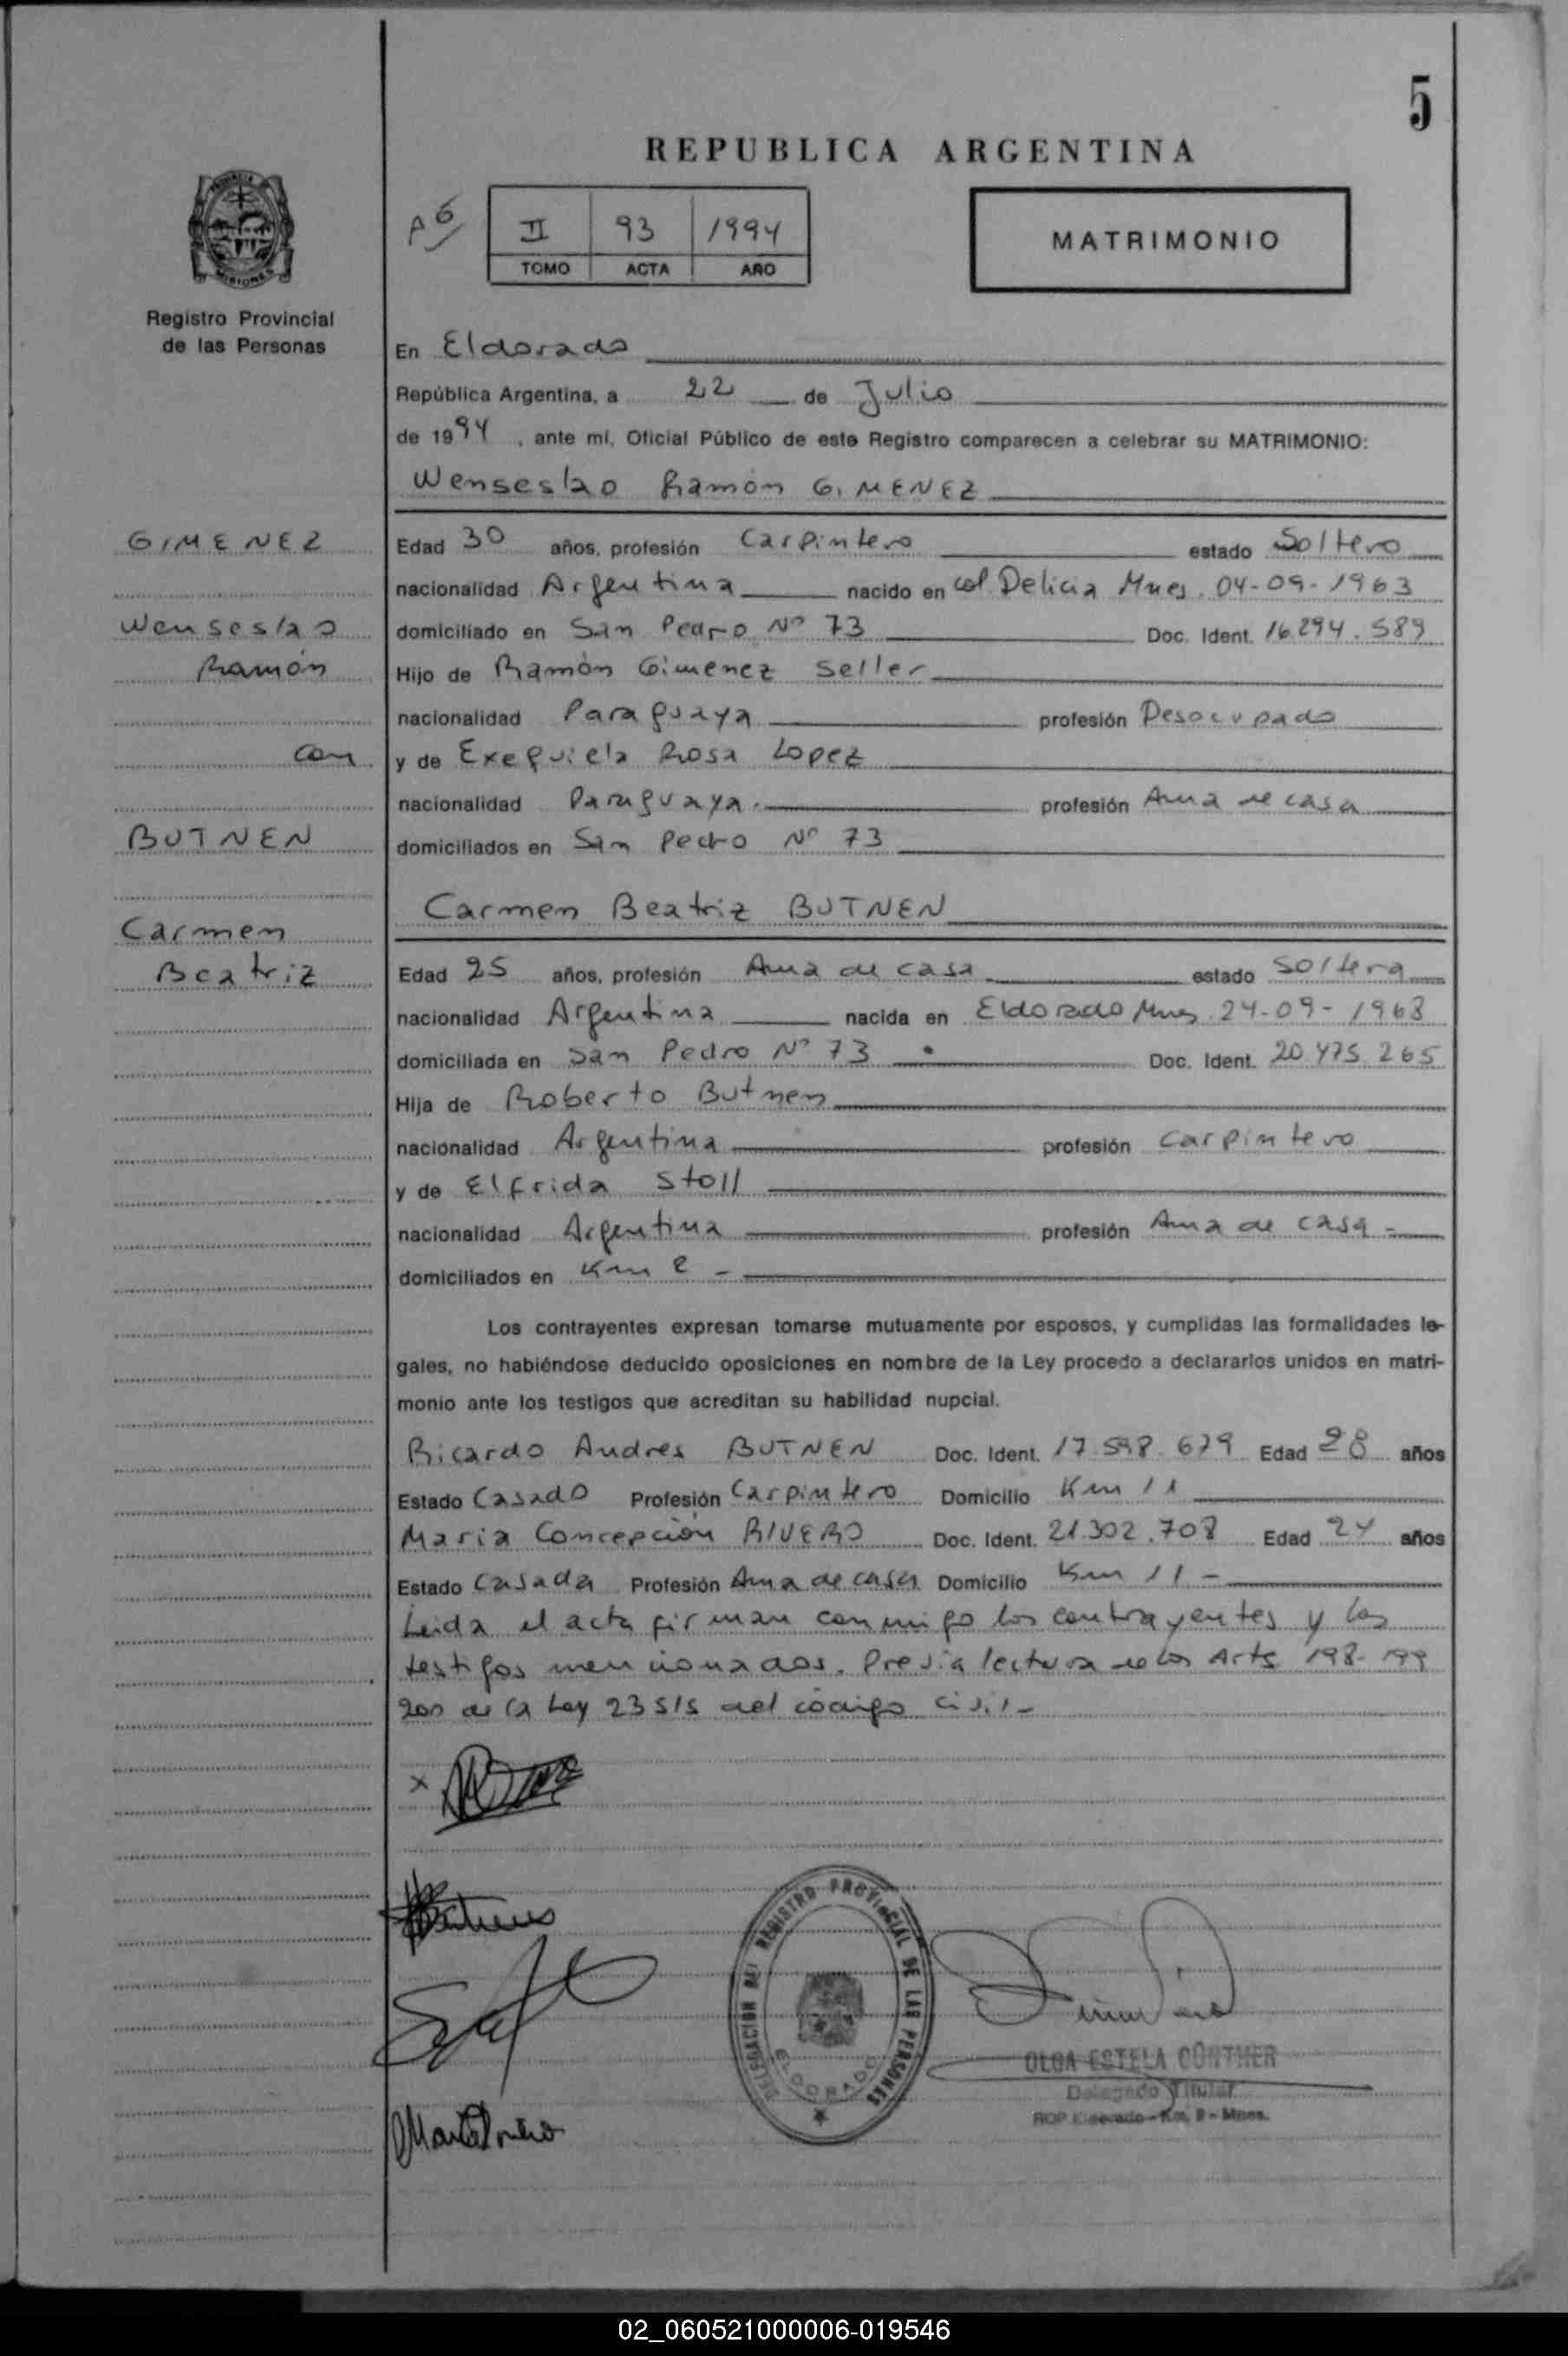 5
REPUBLICA ARGENTINA
A 6
II 93 1994
TOMO ACTA AÑO
MATRIMONIO
MISIONES
Registro Provincial
de las Personas
En Eldorado
República Argentina, a 22 de Julio
de 1994, ante mí, Oficial Público de este Registro comparecen a celebrar su MATRIMONIO:
Wenseslao Ramón GIMENEZ
GIMENEZ
Wenseslao
Ramón
con
BUTNEN
Carmen
Beatriz
Edad 30 años, profesión Carpintero estado Soltero
nacionalidad Argentina nacido en Col. Delicia Mnes. 04-09-1963
domiciliado en San Pedro Nº 73 Doc. Ident. 16.294.589
Hijo de Ramón Gimenez Seller
nacionalidad Paraguaya profesión Desocupado
y de Exequiela Rosa Lopez
nacionalidad Paraguaya. profesión Ama de casa
domiciliados en San Pedro Nº 73
Carmen Beatriz BUTNEN
Edad 25 años, profesión Ama de casa estado Soltera
nacionalidad Argentina nacida en Eldorado Mnes 24-09-1968
domiciliada en San Pedro Nº 73 Doc. Ident. 20.475.265
Hija de Roberto Butnen
nacionalidad Argentina profesión Carpintero
y de Elfrida Stoll
nacionalidad Argentina profesión Ama de casa -
domiciliados en Km 2 -
Los contrayentes expresan tomarse mutuamente por esposos, y cumplidas las formalidades le-
gales, no habiéndose deducido oposiciones en nombre de la Ley procedo a declararlos unidos en matri-
monio ante los testigos que acreditan su habilidad nupcial.
Ricardo Andres BUTNEN Doc. Ident. 17.598.679 Edad 28 años
Estado Casado Profesión Carpintero Domicilio Km 11
Maria Concepción RIVERO Doc. Ident. 21.302.708 Edad 24 años
Estado Casada Profesión Ama de casa Domicilio Km 11 -
Leida el acta firman conmigo los contrayentes y los
testigos mencionados. Previa lectura de los Arts 198-199
200 de la Ley 23515 del código civil -
x
DELEGACION DEL REGISTRO PROVINCIAL DE LAS PERSONAS
ELDORADO
OLGA ESTELA GÜNTHER
Delegado Titular
RDP Eldorado - Km. 9 - Mnes.
02_060521000006-019546